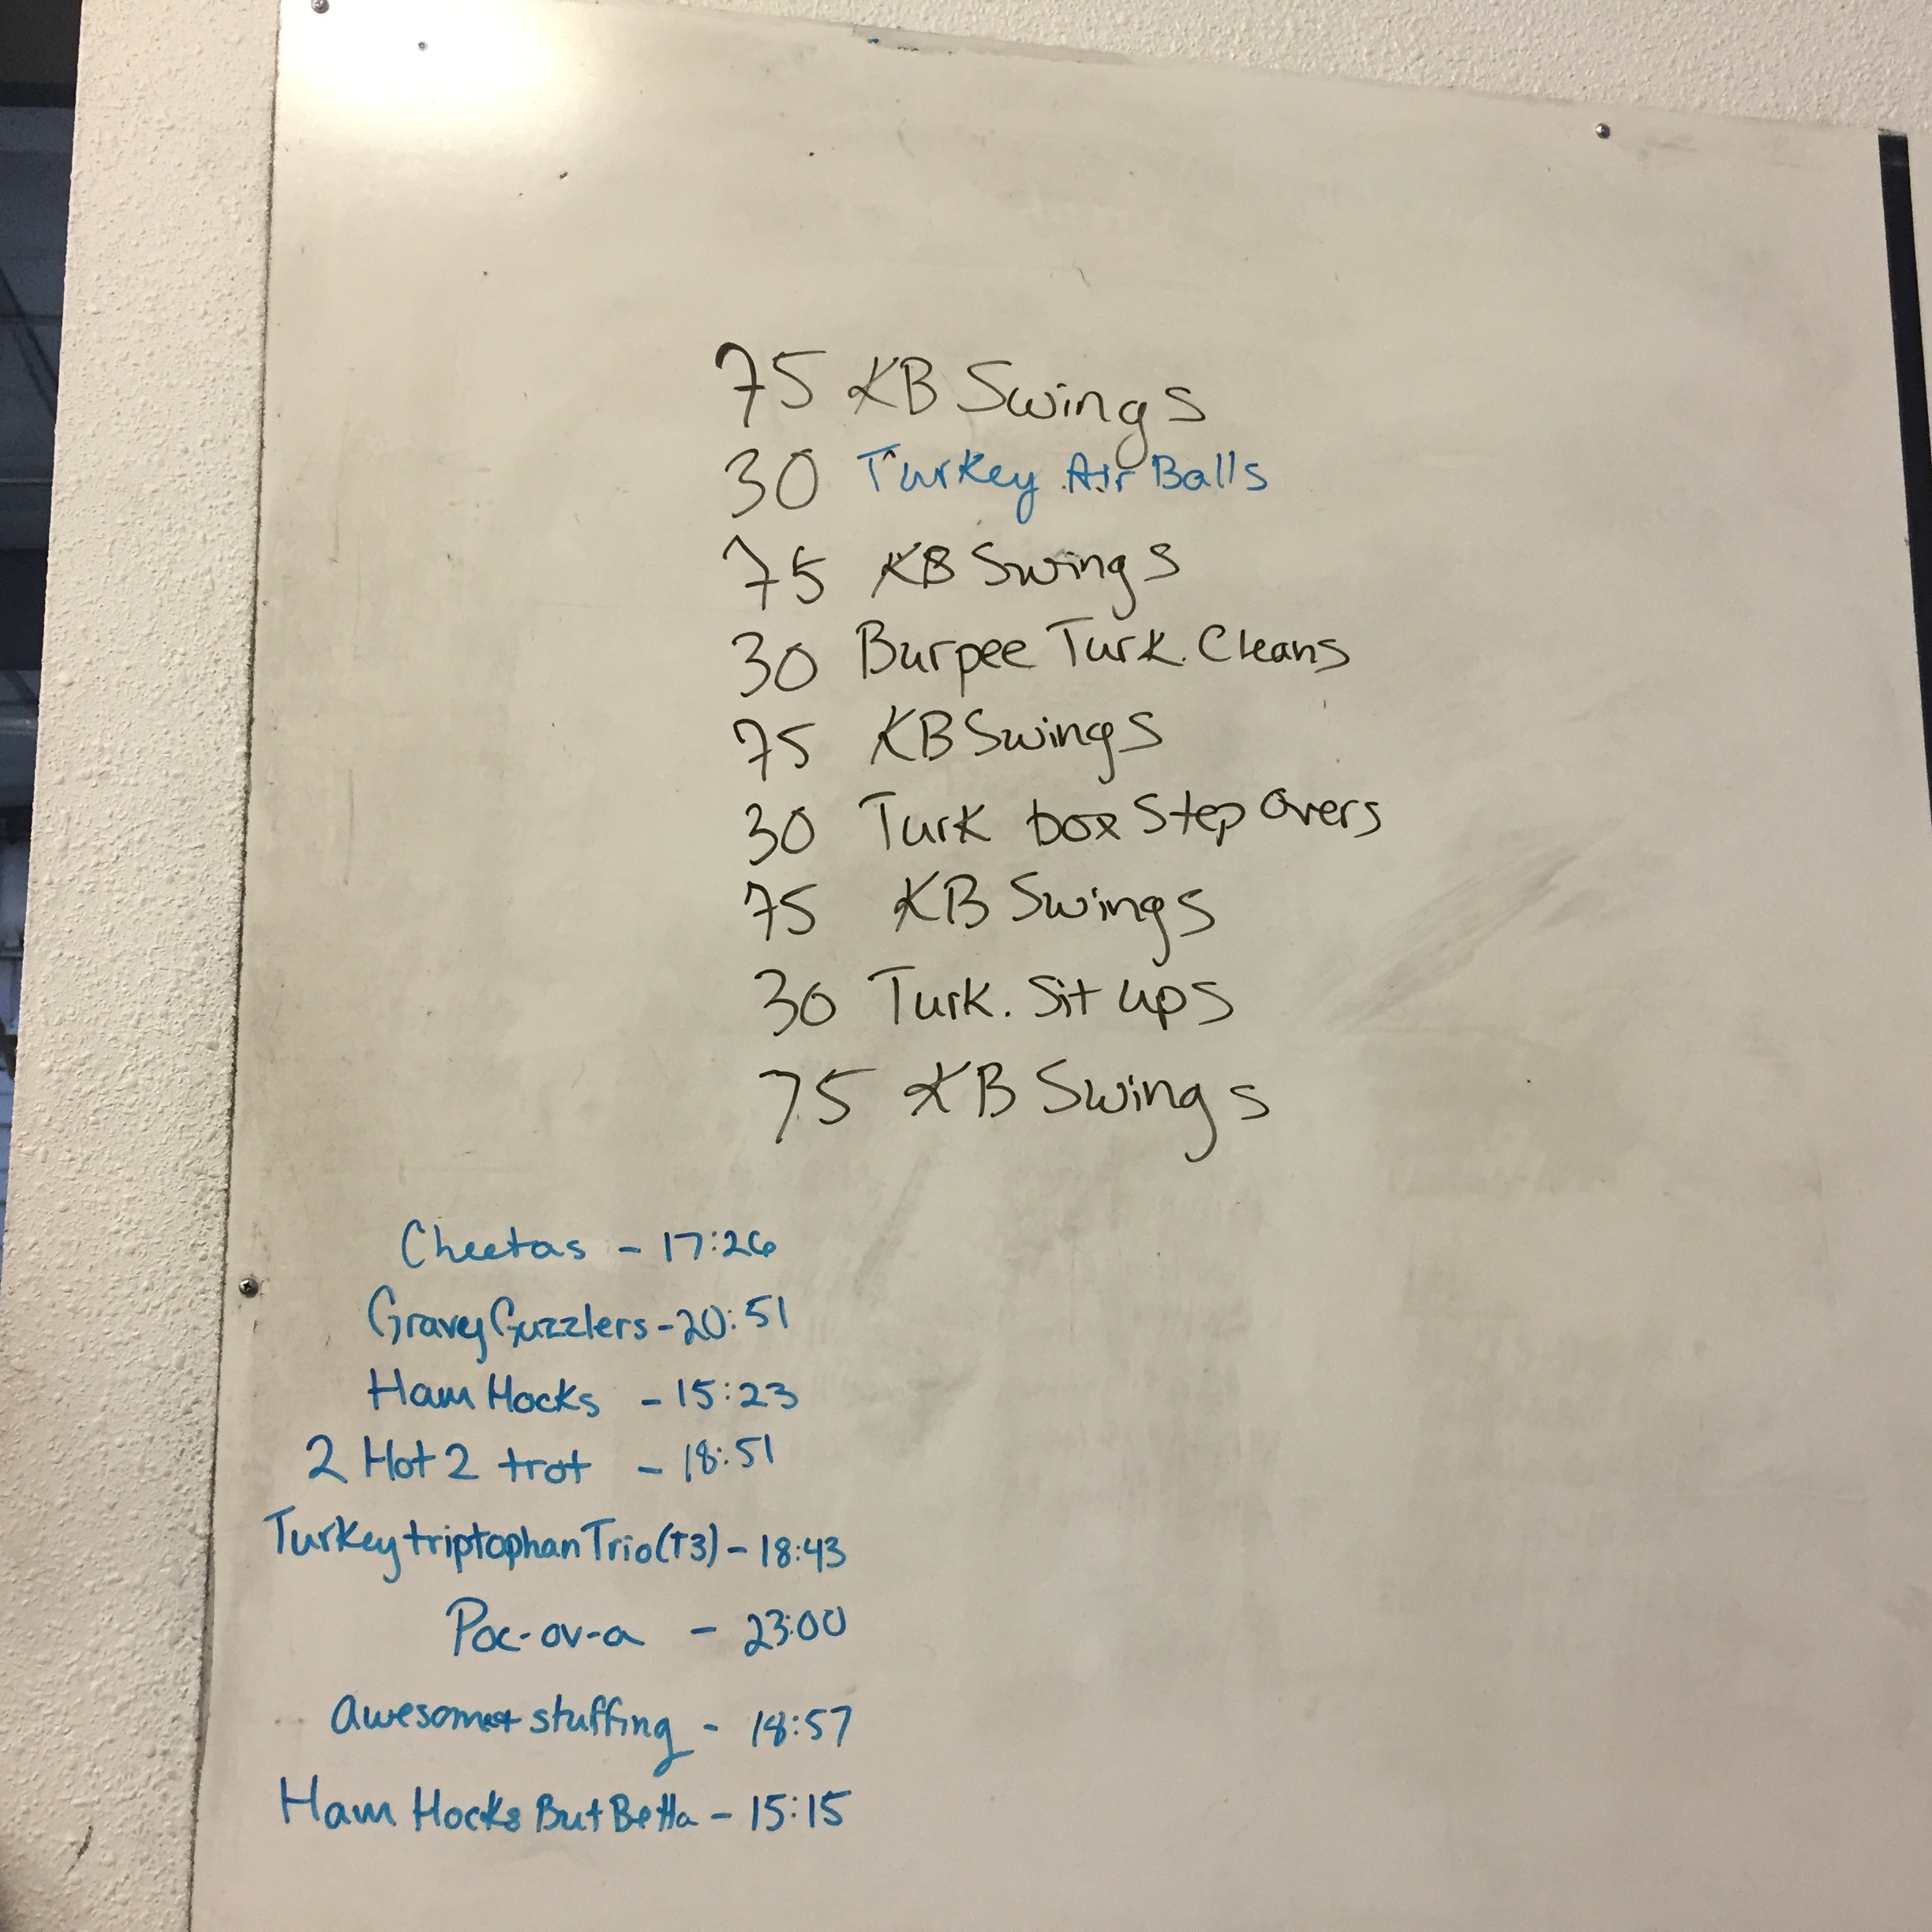 75 KB Swings
30 Turkey Air Balls
75 KB Swings
30 Burpee Turk. Cleans
75 KB Swings
30 Turk box Step Overs
75 KB Swings
30 Turk. Sit ups
75 KB Swings
Cheetas - 17:26
Gravy Guzzlers - 20:51
Ham Hocks - 15:23
2 Hot 2 trot - 18:51
Turkey triptophan Trio (T3) - 18:43
Poc-ov-a - 23:00
stuffing - 18:57
Ham Hocks But Betta - 15:15